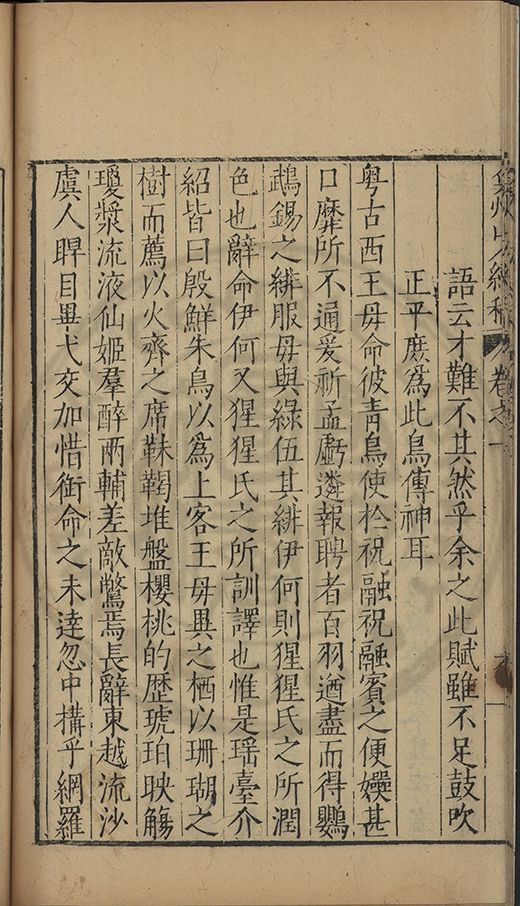 弇州山人續稿 卷之一
語云才難不其然乎余之此賦雖不足鼓吹
正平庶為此鳥傳神耳
粵古西王母命彼青鳥使扵祝融祝融賓之便嬛甚
口靡所不通爰祈孟虧遴報聘者百羽遒盡而得鸚
鵡錫之緋服毋與綠伍其緋伊何則猩猩氏之所潤
色也辭命伊何又猩猩氏之所訓譯也惟是瑶臺介
紹皆曰殷鮮朱鳥以為上客王母異之栖以珊瑚之
樹而薦以火齊之席靺鞨堆盤櫻桃的歴琥珀映觴
瓊漿流液仙姬羣醉兩輔差敵鷩焉長辭東越流沙
虞人睅目畢弋交加惜銜命之未達忽中構乎網羅